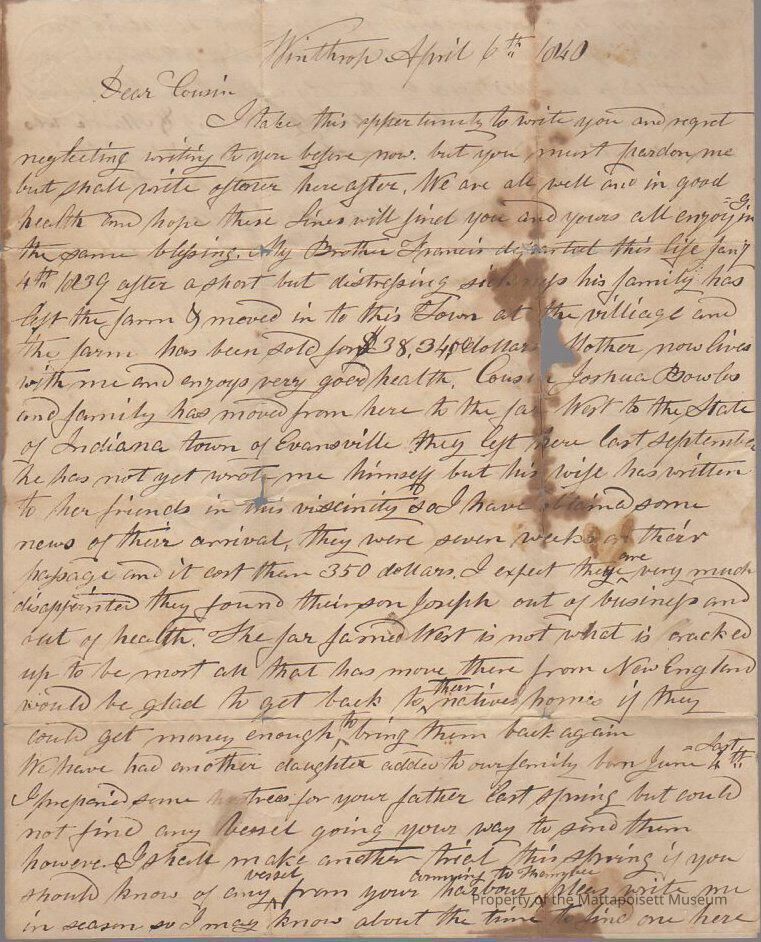 Winthrop April 6th 1840
Dear Cousin
I take this oppertunity to write you and regret
neglecting writing to you before now. but you must pardon me
but shall write oftener here after. We are all well and in good
health and hope these lines will find you and yours all enjoyin=g
the same blessing. My Brother Francis departed this life Jany
4th 1839 after a short but distressing sickness his family has
left the farm & moved in to this Town at the villiage and
the farm has been sold for $38,34 dollars Mother now lives
with me and enjoys very good health. Cousin Joshua Bowles
and family has moved from here to the far West to the State
of Indiana town of Evansville they left here last september
he has not yet wrote me himself but his wife has written
to her friends in this viscinity so I have obtaind some
news of their arrival, they were seven weeks on their
passage and it cost them 350 dollars. I expect they are very much
disappointed they found their son Joseph out of business and
out of health. The far famed West is not what is cracked
up to be most all that has move there from New England
would be glad to get back to their natives homes if they
could get money enough to bring them back again
We have had another daughter added to our family born June =Last 4th
I prepared some trees for your father last spring but could
not find any vessel going your way to send them
however I shall make another trial this spring if you
should know of any vessel from your harbour comming to pleas write me
in season so I may know about the time to find one here
Property of the Mattapoisett Museum